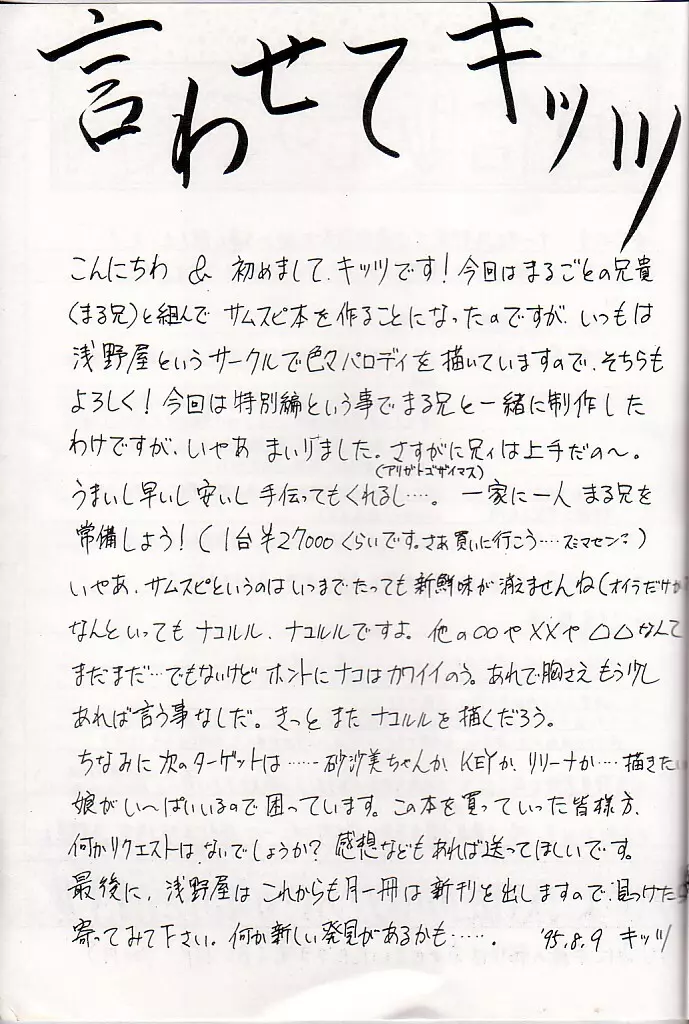 言わせてキッツ
こんにちわ & 初めまして、キッツです!今回はまるごとの兄貴
(まる兄)と組んで サムスピ本を作ることになったのですが、いつもは
浅野屋というサークルで色々パロディを描いていますので、そちらも
よろしく!今回は特別編という事でまる兄と一緒に制作した
わけですが、いやあ まいりました。さすがに兄ィは上手だの〜。
(アリガトゴザイマス)
うまいし早いし安いし 手伝ってもくれるし‥‥。 一家に一人 まる兄を
常備しよう!(1台¥27000くらいです。さあ買いに行こう‥‥スミマセン?)
いやあ、サムスピというのはいつまでたっても新鮮味が消えませんね(オイラだけか
なんといっても ナコルル、ナコルルですよ。他の○○や××や△△なんて
まだまだ‥でもないけど ホントにナコはカワイイのう。あれで胸さえもう少し
あれば言う事なしだ。きっと また ナコルルを描くだろう。
ちなみに次のターゲットは‥‥‥砂沙美ちゃんか、KEYか、リリーナか‥‥描きたい
娘がい〜ぱいいるので困っています。この本を買っていった皆様方、
何かリクエストは ないでしょうか?感想などもあれば送ってほしいです。
最後に、浅野屋は これからも月一冊は新刊を出しますので、見つけたら
寄ってみて下さい。何か新しい発見があるかも‥‥‥. '95.8.9 キッツ